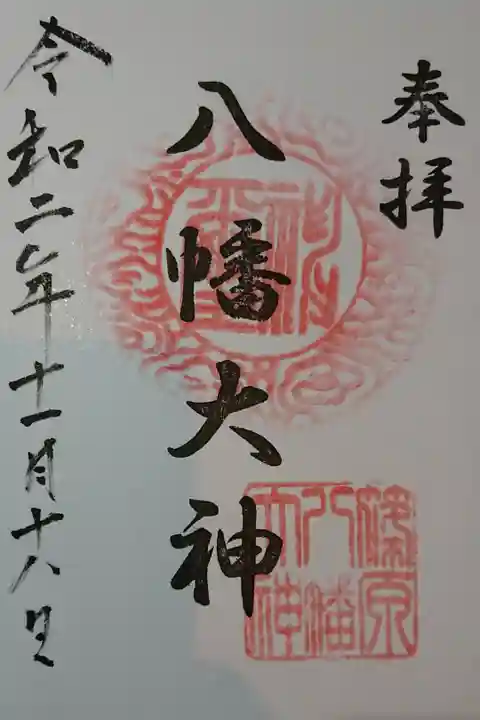 奉拝
八幡大神
令和二年十一月十八日
八幡
大神